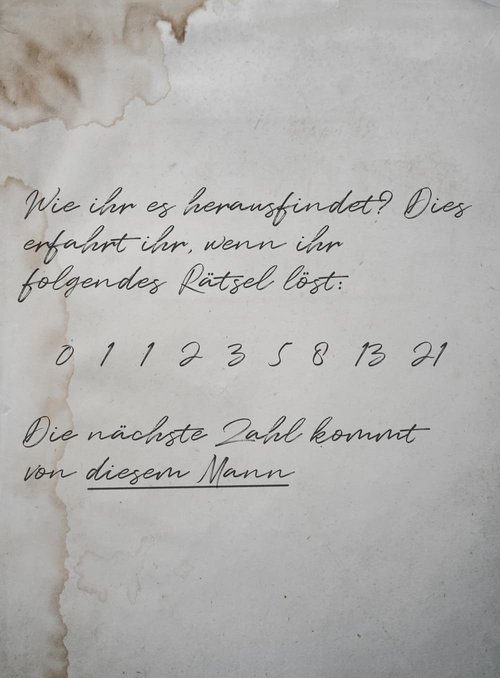 Wie ihr es herausfindet? Dies
erfahrt ihr, wenn ihr
folgendes Rätsel löst:
0 1 1 2 3 5 8 13 21
Die nächste Zahl kommt
von diesem Mann